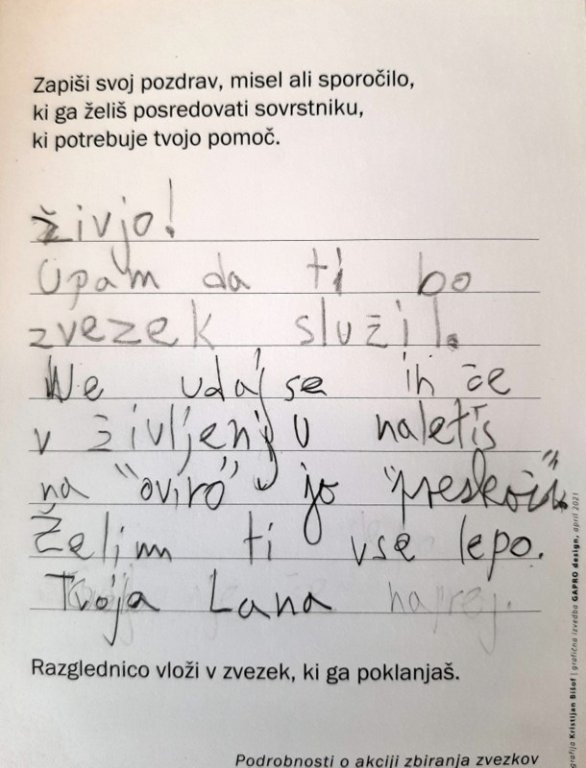 Zapiši svoj pozdrav, misel ali sporočilo,
ki ga želiš posredovati sovrstniku,
ki potrebuje tvojo pomoč.
živjo!
Upam da ti bo
zvezek služil.
Ne udaj se in če
v življenju naletiš
na "oviro" jo "preskoči".
Želim ti vse lepo.
Tvoja Lana naprej.
Razglednico vloži v zvezek, ki ga poklanjaš.
Podrobnosti o akciji zbiranja zvezkov
Kristijan Bišof | grafična izvedba GAPRO design, april 2021